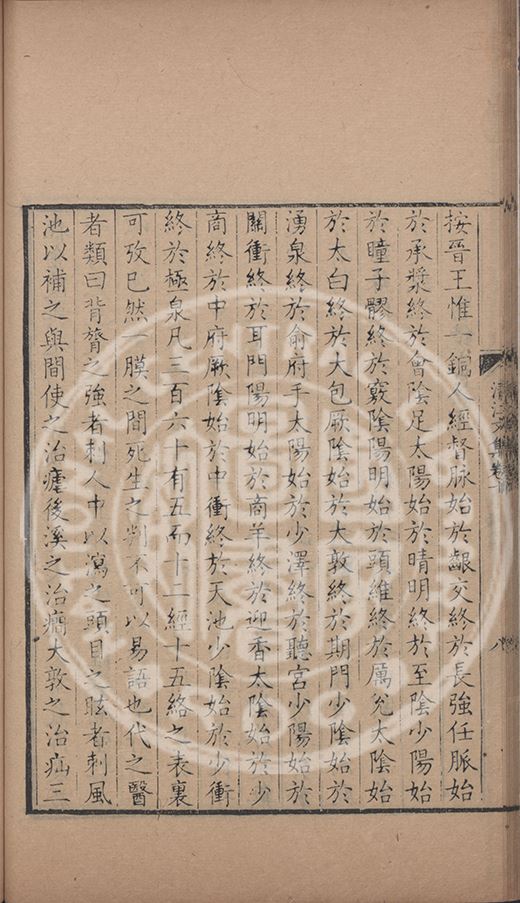 按晉王惟一銅人經督脉始於齦交終於長強任脈始
於承漿終於會陰足太陽始於晴明終於至陰少陽始
於瞳子髎終於竅陰陽明始於頭維終於厲兊太陰始
於太白終於大包厥陰始於大敦終於期門少陰始於
湧泉終於俞府手太陽始於少澤終於聽宮少陽始於
關衝終於耳門陽明始於商羊終於迎香太陰始於少
商終於中府厥陰始於中衝終於天池少陰始於少衝
終於極泉凡三百六十有五而十二經十五絡之表裏
可攷已然一膜之間死生之判不可以易語也代之醫
者類曰背膂之強者刺人中以瀉之頭目之眩者刺風
池以補之與間使之治瘧後溪之治癇大敦之治疝三